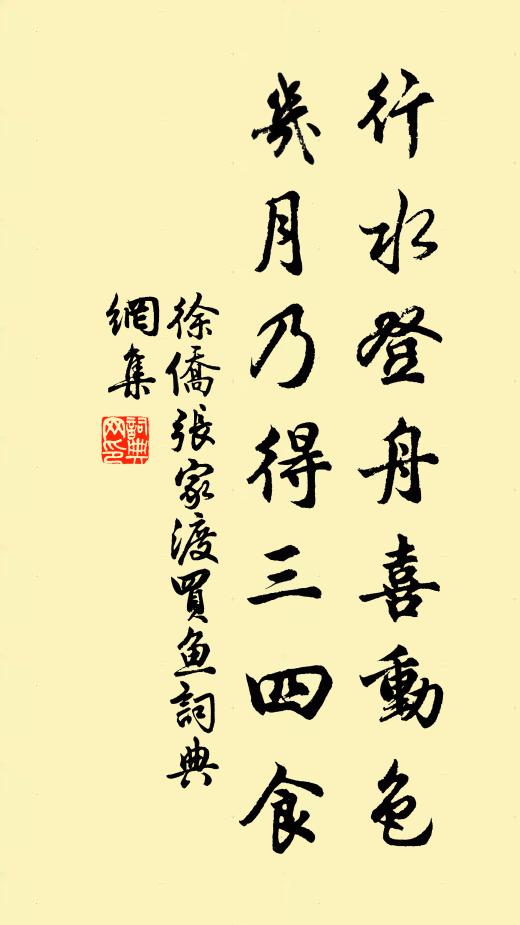 行水登舟喜動色
幾月乃得三四食
徐僑張家渡買魚詞典
網集
詞典
网印